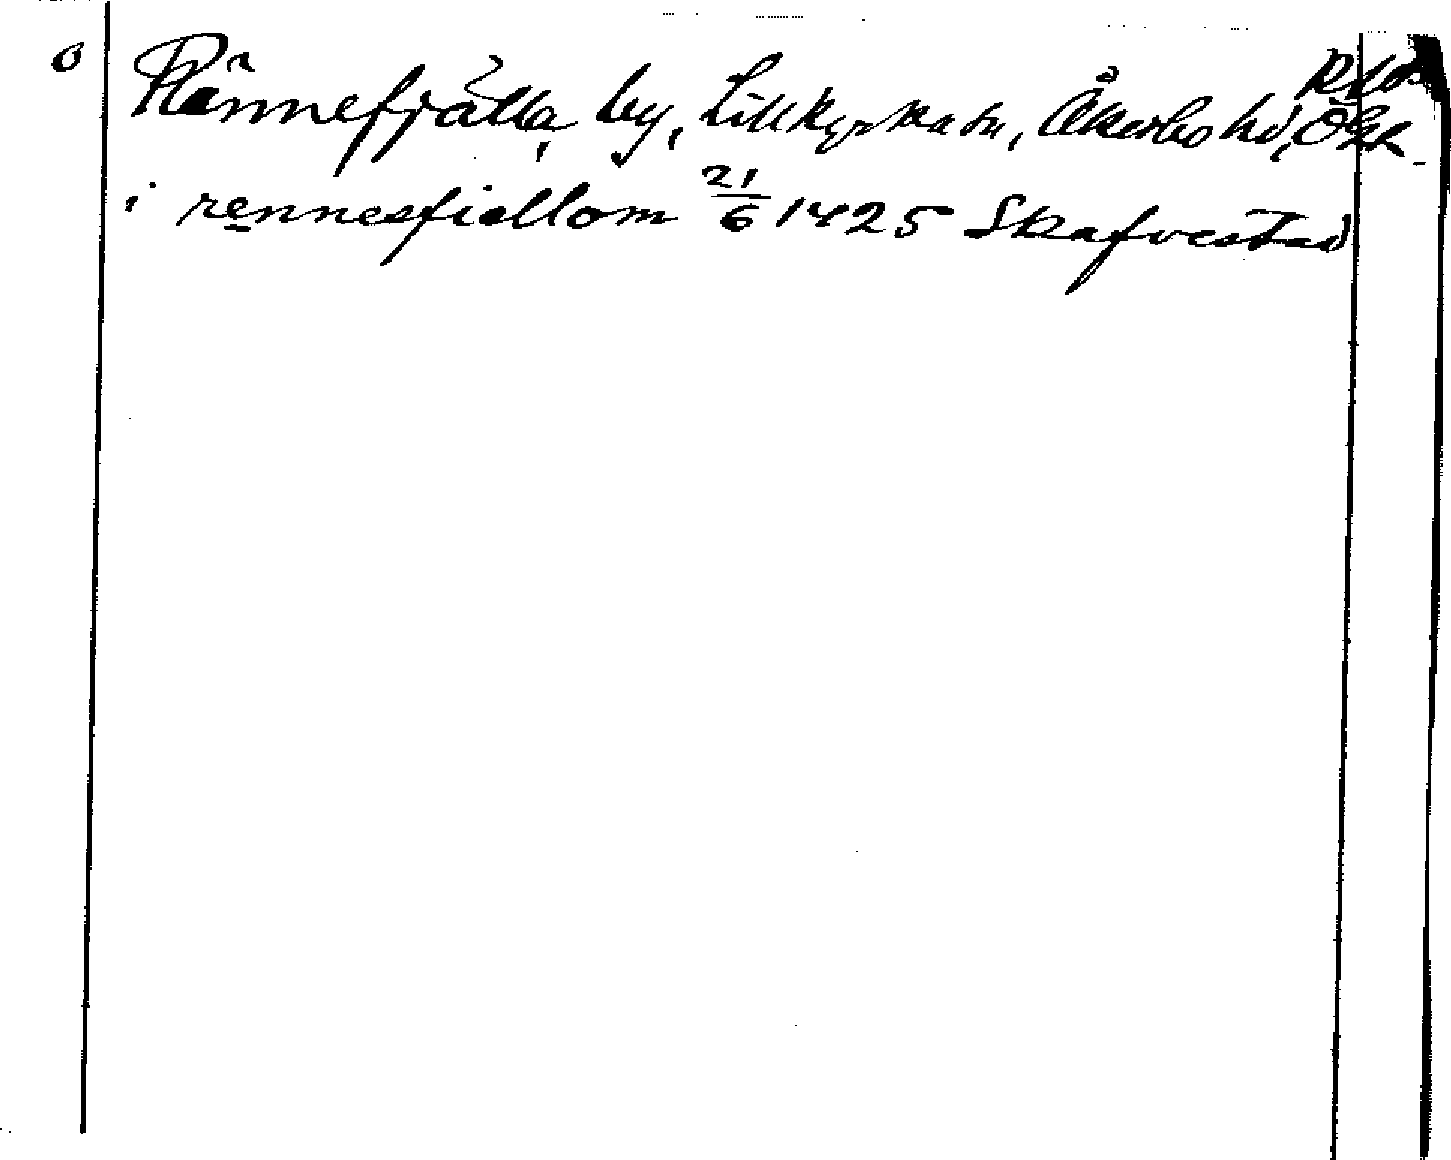 o Rännefjälla, by, Lillkyrka sn, Åkerbo hd, Ögl
i rennesfiellom 21/6 1425 Skafvestad